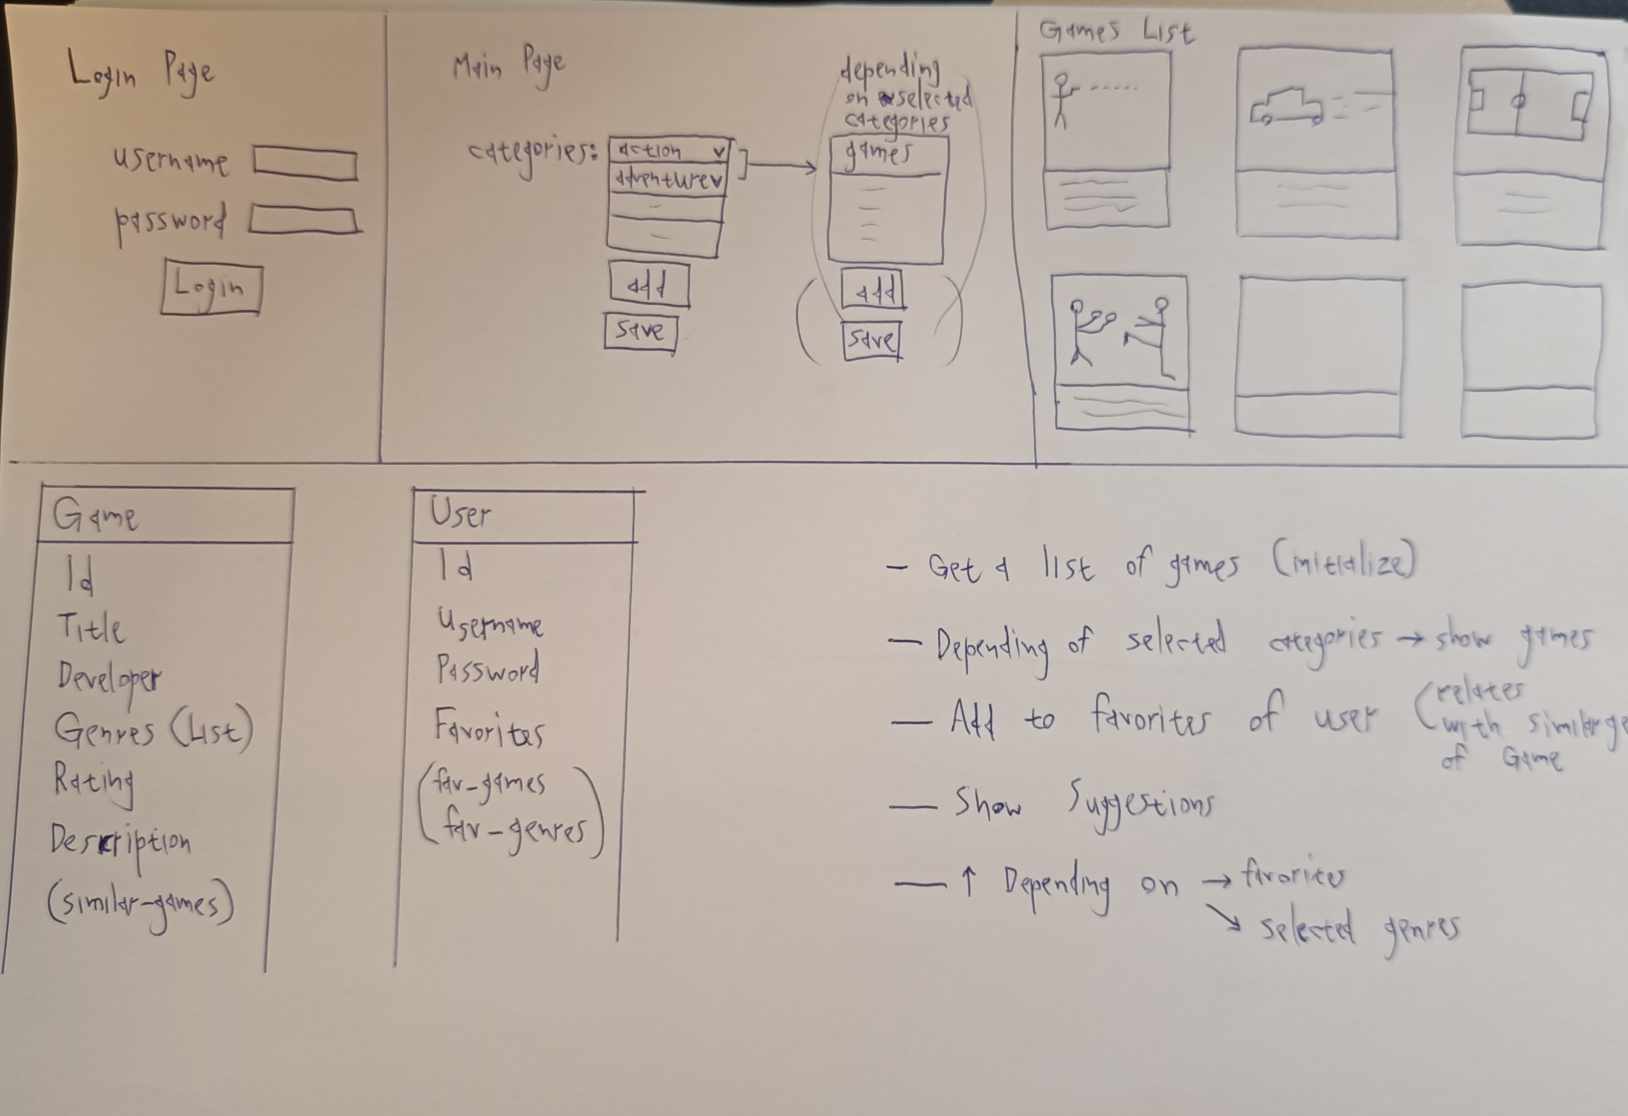 Login Page
username
password
Login
Main Page
categories:
action v
adventure v
add
save
depending
on selected
categories
games
add
save
Games List
Game
Id
Title
Developer
Genres (List)
Rating
Description
(similar-games)
User
Id
Username
Password
Favorites
(fav-games
fav-genres)
- Get a list of games (initialize)
- Depending of selected categories → show games
- Add to favorites of user (relates
with similar
of Game
- Show Suggestions
- ↑ Depending on → favorites
↘ selected genres